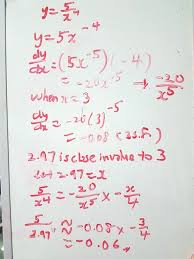 y = 5/x⁴
y = 5x⁻⁴
dy/dx = (5x⁻⁵)(-4)
= -20x⁻⁵ ⇒ -20/x⁵
when x = 3
dy/dx = -20(3)⁻⁵
= -0.08 (3S.F.)
2.97 is close in value to 3
let 2.97 = x
5/x⁴ = -20/x⁵ × -x/4
5/2.97 ≈ -0.08 × -3/4
≈ -0.06